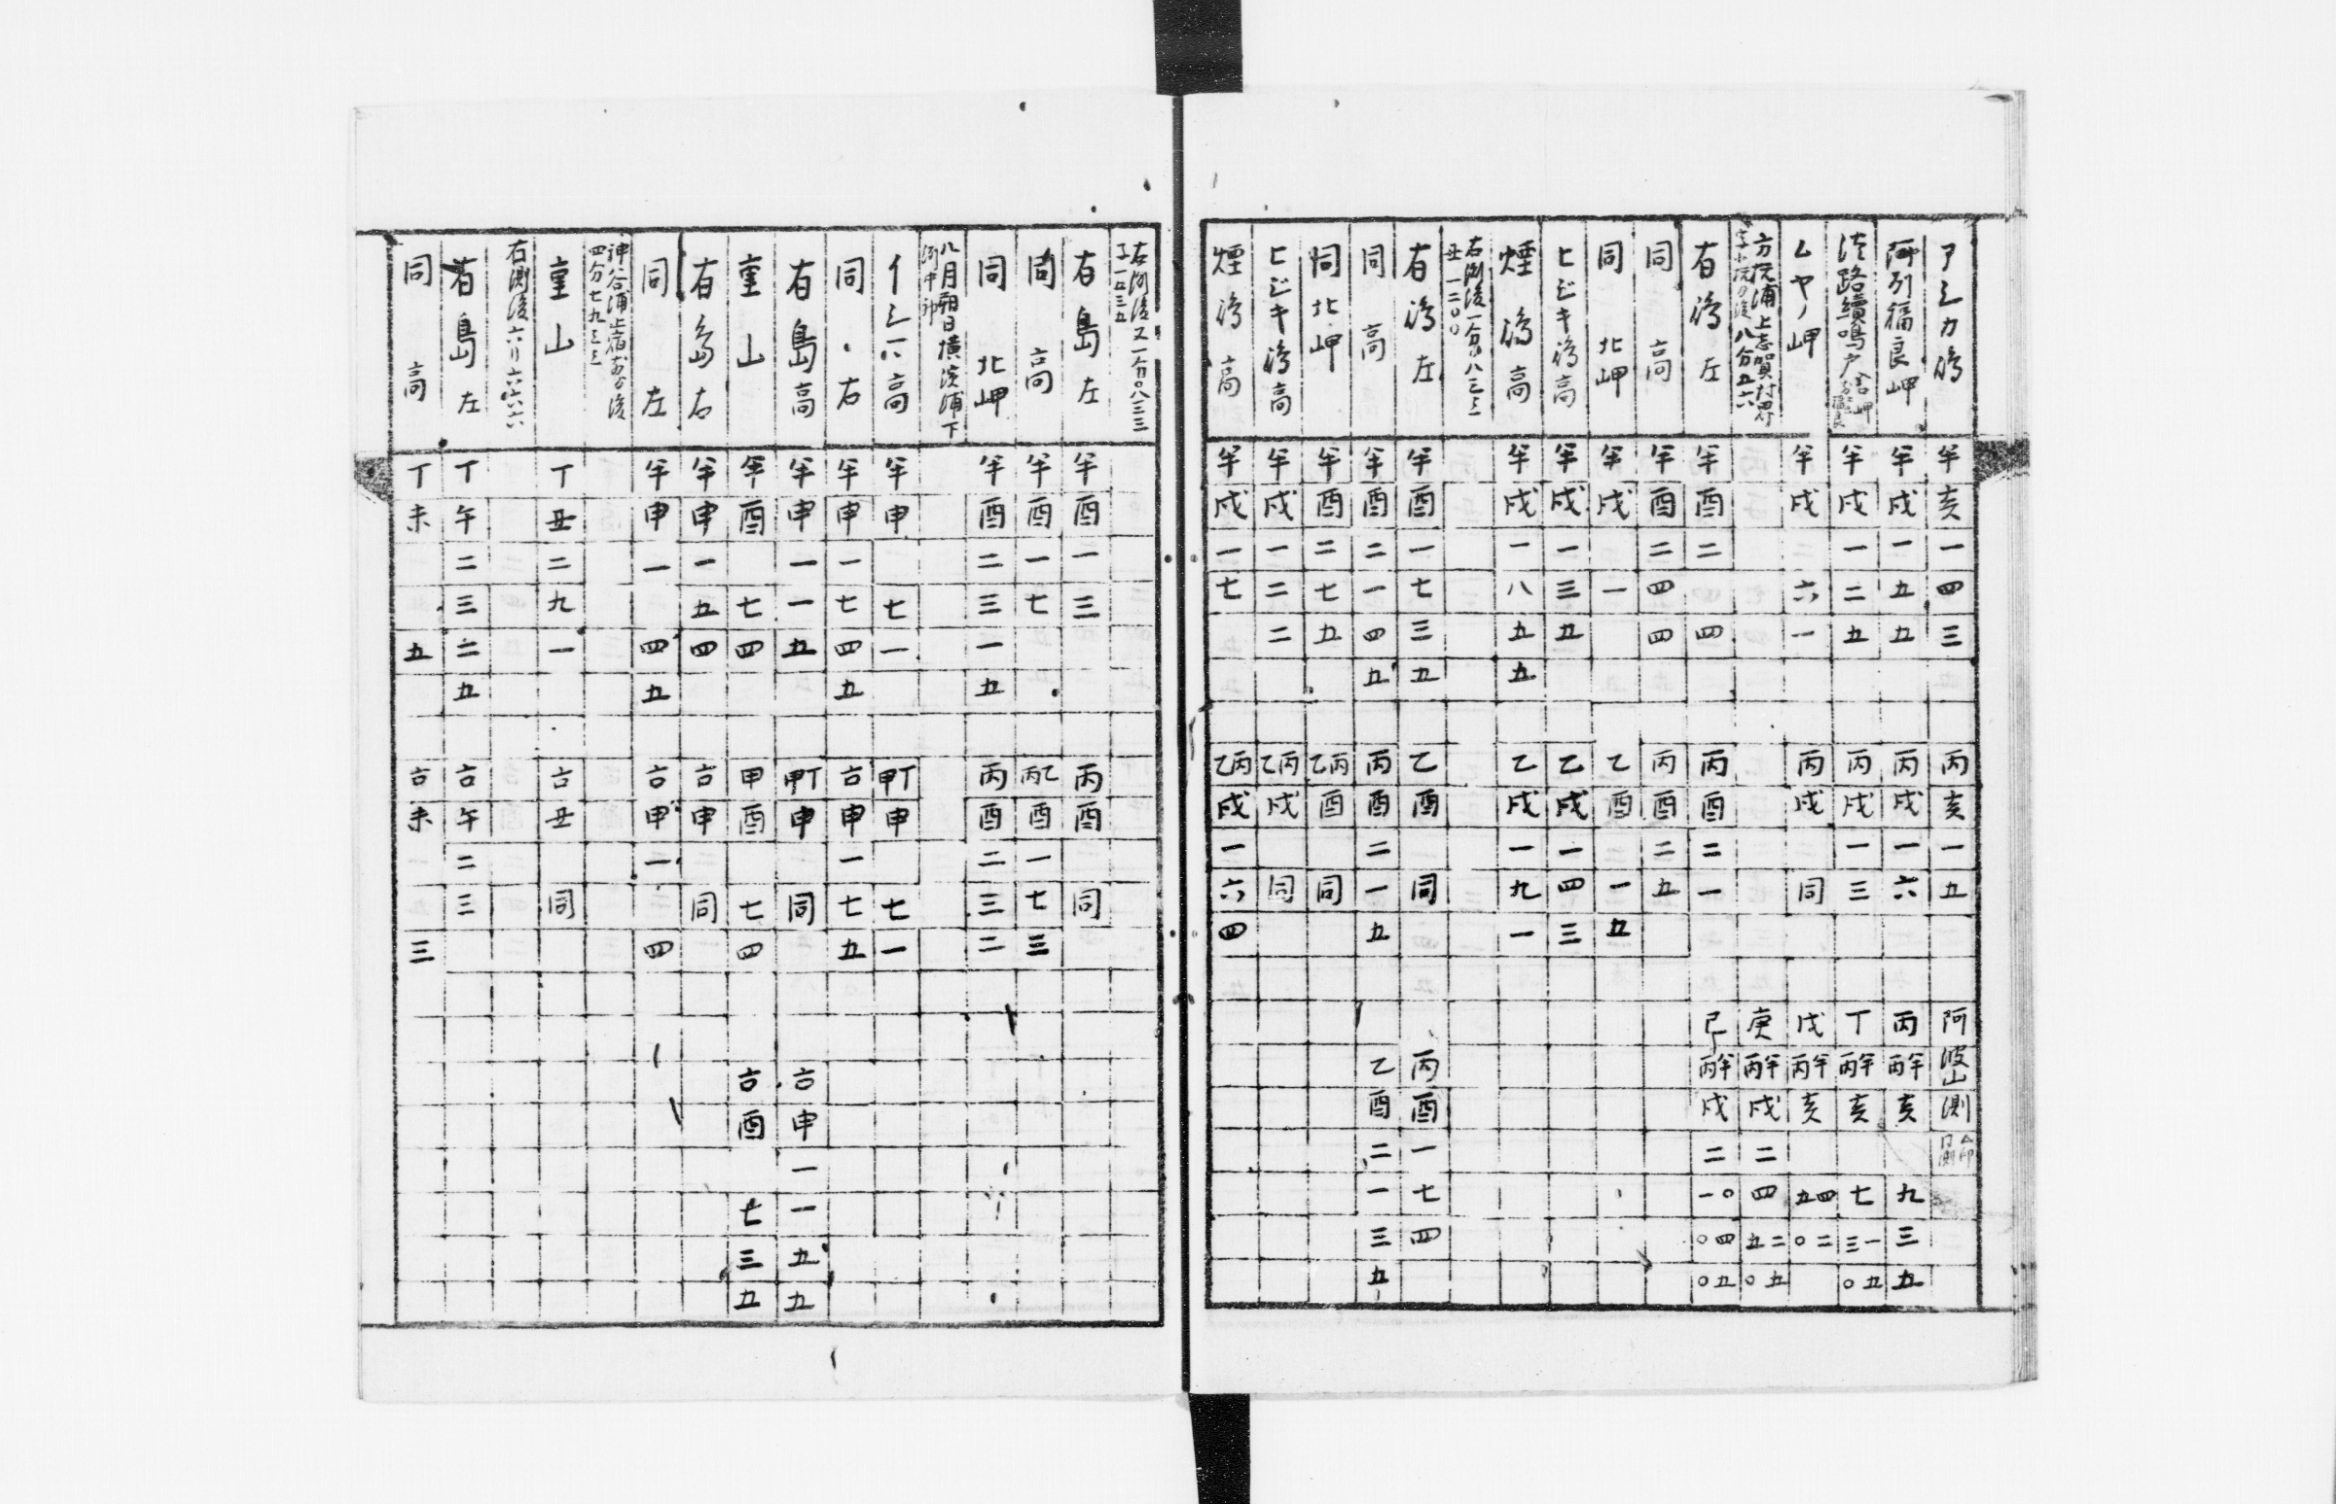 アシカ島 半亥一四三 丙亥一五 阿波山測
阿列福良岬 半戌一五五 丙戌一六 丙 丙半亥九三五
淡路續鳴戸 半戌一二五 丙戌一三 丁 丙半亥七三一〇五
ムヤノ岬 半戌六一 丙戌同 戊 丙半亥五四〇二
方杭浦上志賀村界 八分五六 庚 丙半戌二四五二〇五
有島左 半酉二四 丙酉二一 己 丙半戌二一〇〇四〇五
同高 半酉二四四 丙酉二五
同北岬 半戌一 乙酉一五
ヒジキ島高 半戌一三五 乙戌一四三
煙島高 半戌一八五五 乙戌一九一
右測後一分〇八三三
丑一二〇〇
有島左 半酉一七三五 乙酉同 丙酉一七四
同高 半酉二一四五 丙酉二一五 乙酉二一三五
同北岬 半酉二七五 乙丙酉同
ヒジキ島高 半戌一二二 乙丙戌同
煙島高 半戌一七 乙丙戌一六四
右測後又一分〇八三三
子一〇三五
有島左 半酉一三 丙酉同
同高 半酉一七 丙乙酉一七三
同北岬 半酉二三一五 丙酉二三二
八月朔日横濱浦下
測中印
イシ六高 半申七一 甲丁申七一
同右 半申一七四五 古申一七五
有島高 半申一一五 甲丁申同 古申一一五五
重山 半酉七四 甲酉七四 古酉七三五
有島右 半申一五四 古申同
同左 半申一四五 古申一四
神谷浦止宿前ゟ後
四分七九三三
重山 丁丑二九一 古丑同
右測後六リ六六六
有島左 丁午二三二五 古午二三
同高 丁未五 古未三